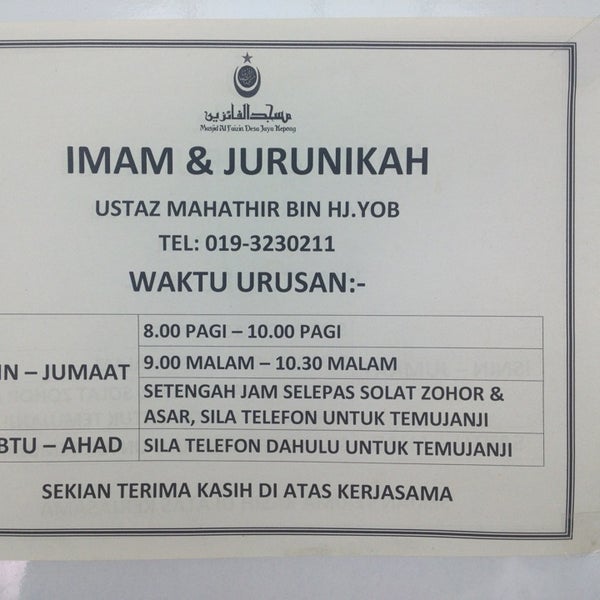 مسجد الفائزين
Masjid Al Faizin Desa Jaya Kepong
IMAM & JURUNIKAH
USTAZ MAHATHIR BIN HJ.YOB
TEL: 019-3230211
WAKTU URUSAN:-
8.00 PAGI – 10.00 PAGI
IN – JUMAAT
9.00 MALAM – 10.30 MALAM
SETENGAH JAM SELEPAS SOLAT ZOHOR &
ASAR, SILA TELEFON UNTUK TEMUJANJI
BTU – AHAD
SILA TELEFON DAHULU UNTUK TEMUJANJI
SEKIAN TERIMA KASIH DI ATAS KERJASAMA